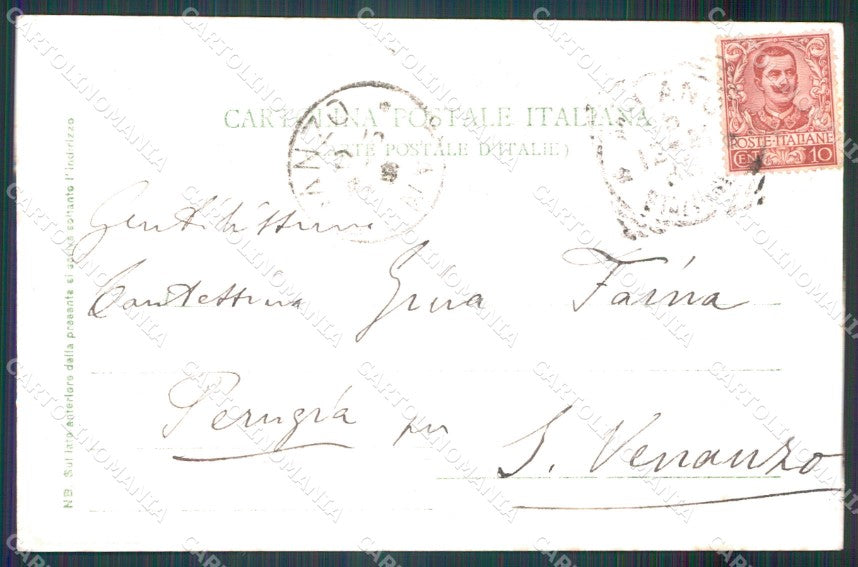 CARTOLINA POSTALE ITALIANA
(CARTE POSTALE D'ITALIE)
POSTE·ITALIANE
CEN 10
Gentilissima
Contessina Gina Faina
Perugia per
S. Venanzo
NB. Sul lato anteriore della presente si scrive soltanto l'indirizzo
CARTOLINOMANIA